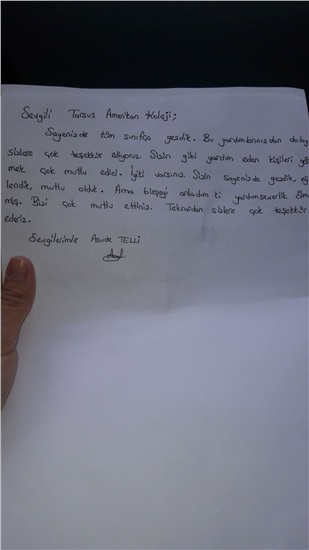 Sevgili Tarsus Amerikan Koleji;
Sayenizde tüm sınıfça gezdik. Bu yardımlarınızdan dolayı
sizlere çok teşekkür ediyoruz. Sizin gibi yardım eden kişileri gör
mek çok mutlu edici. İyiki varsınız. Sizin sayenizde gezdik, eğ
lendik, mutlu olduk. Ama bişeyi anladım ki yardımseverlik ölme
miş. Bizi çok mutlu ettiniz. Tekrardan sizlere çok teşekkür
ederiz.
Sevgilerimle Asude TELLİ